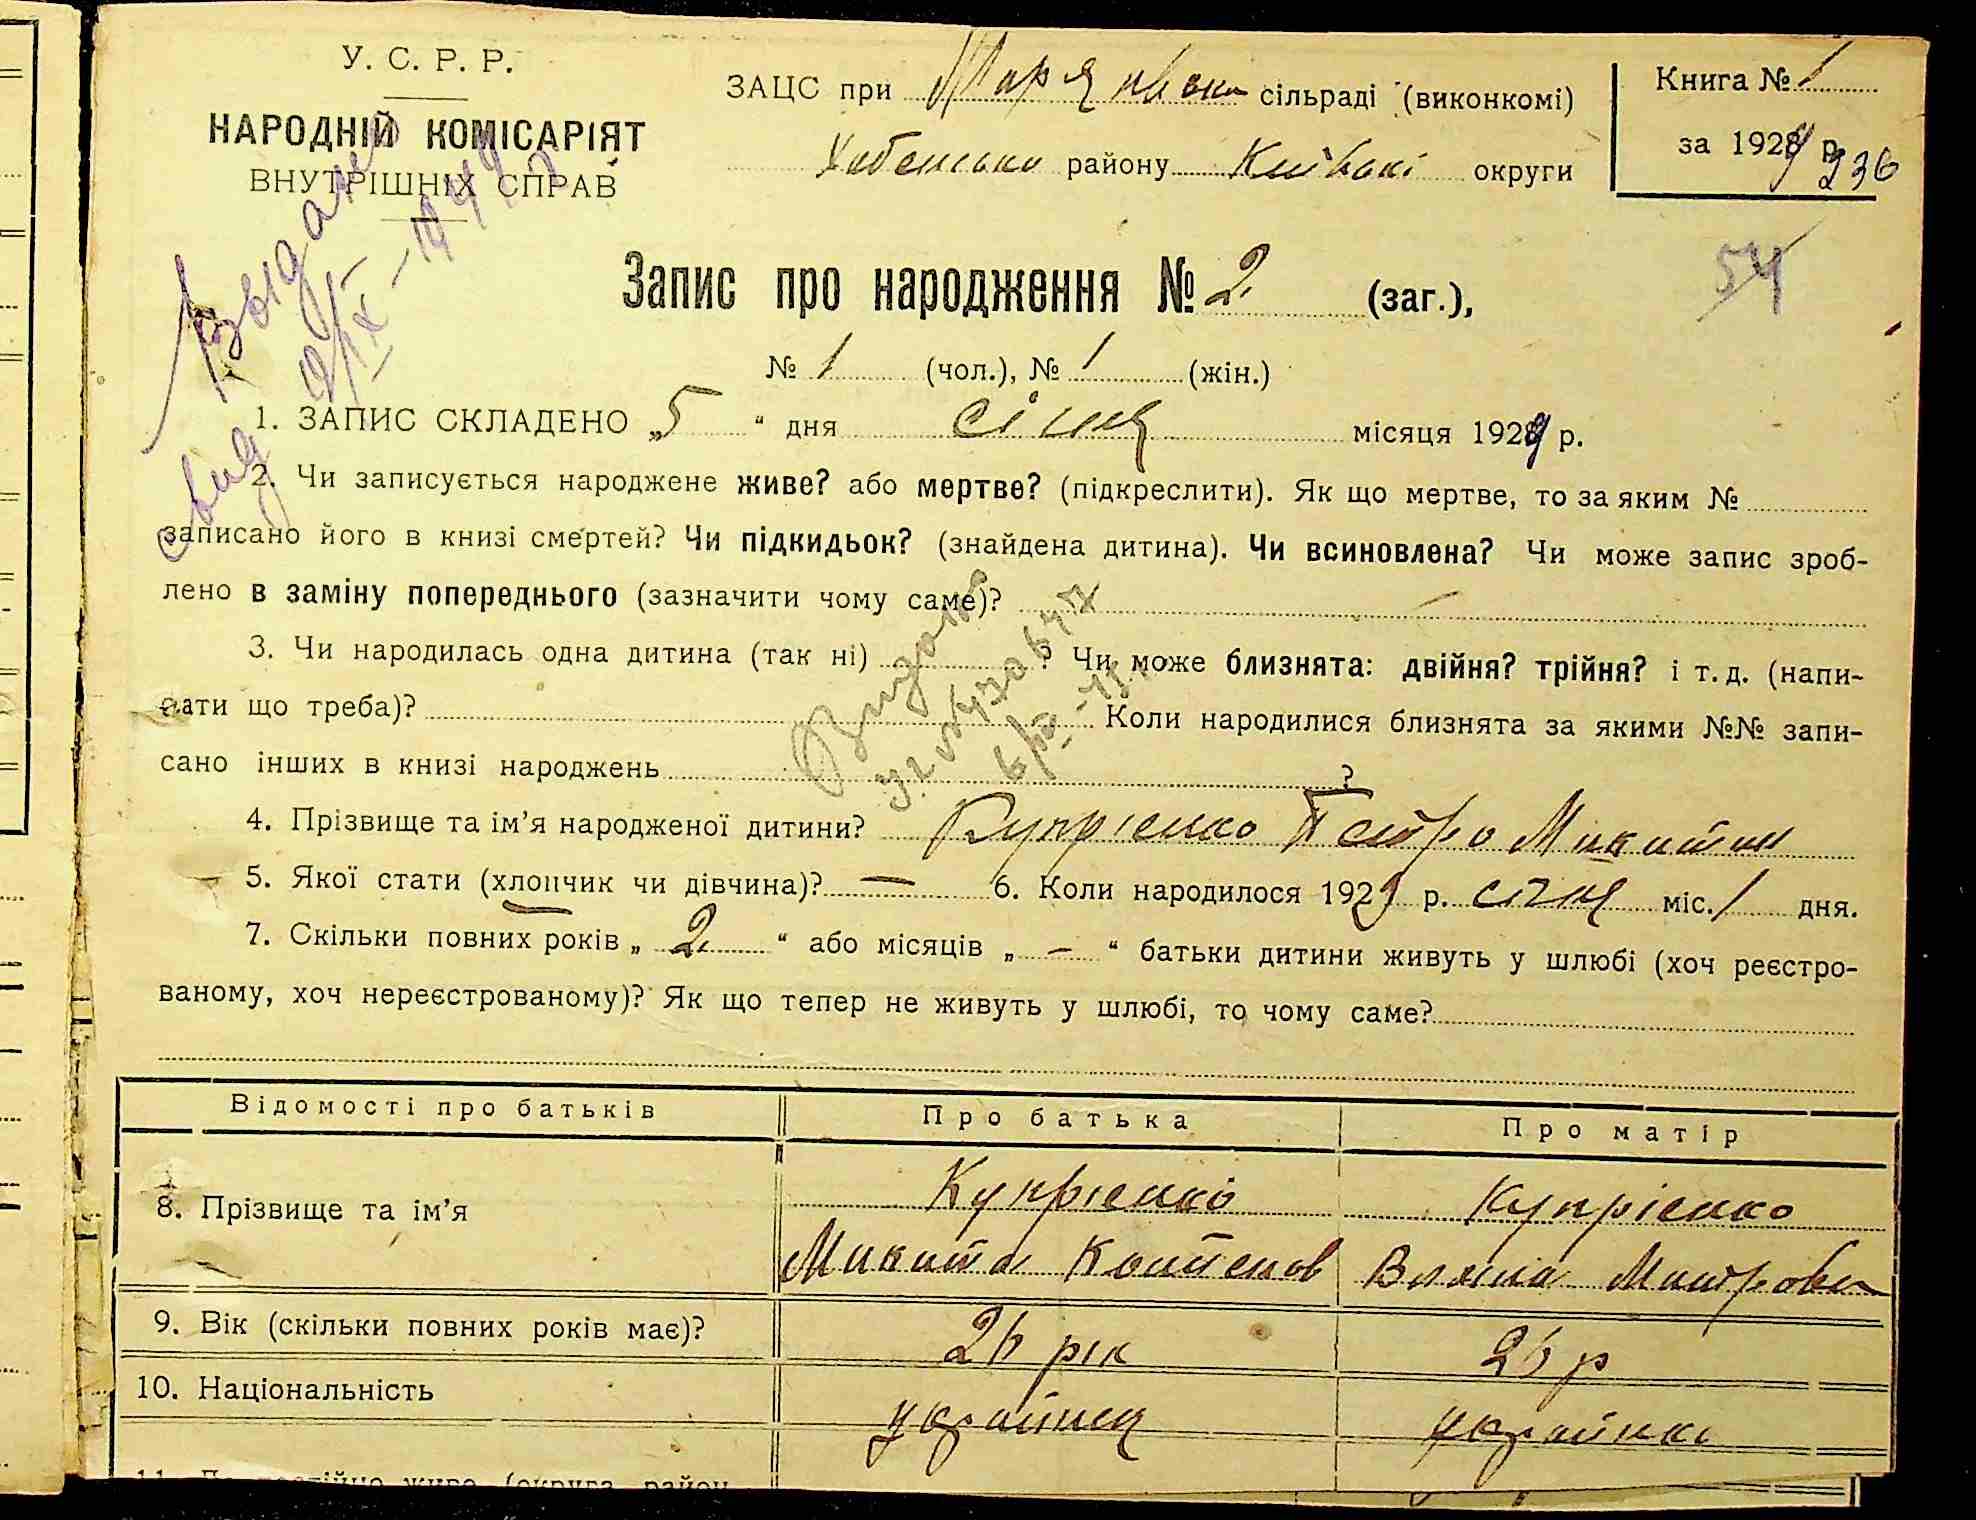 У. С. Р. Р.
НАРОДНІЙ КОМІСАРІЯТ
ВНУТРІШНІХ СПРАВ
ЗАЦС при сільраді (виконкомі)
Хабенсько району Київські округи
Книга № 1
за 1929 р.
54
Запис про народження № 2 (заг.),
№ 1 (чол.), № 1 (жін.)
1. ЗАПИС СКЛАДЕНО „5“ дня січня місяця 1929 р.
2. Чи записується народжене живе? або мертве? (підкреслити). Як що мертве, то за яким №
записано його в книзі смертей? Чи підкидьок? (знайдена дитина). Чи всиновлена? Чи може запис зроб-
лено в заміну попереднього (зазначити чому саме)?
3. Чи народилась одна дитина (так ні) ? Чи може близнята: двійня? трійня? і т. д. (напи-
сати що треба)? Коли народилися близнята за якими №№ запи-
сано інших в книзі народжень ?
4. Прізвище та ім’я народженої дитини? Купрієнко Петро Микитин
5. Якої стати (хлопчик чи дівчина)? — 6. Коли народилося 1929 р. січня міс. 1 дня.
7. Скільки повних років „ 2 “ або місяців „ – “ батьки дитини живуть у шлюбі (хоч реєстро-
ваному, хоч нереєстрованому)? Як що тепер не живуть у шлюбі, то чому саме?
Відомості про батьків Про батька Про матір
8. Прізвище та ім’я Купрієнко Купрієнко
Микита
9. Вік (скільки повних років має)? 26 рік 26 р
10. Національність українец українка